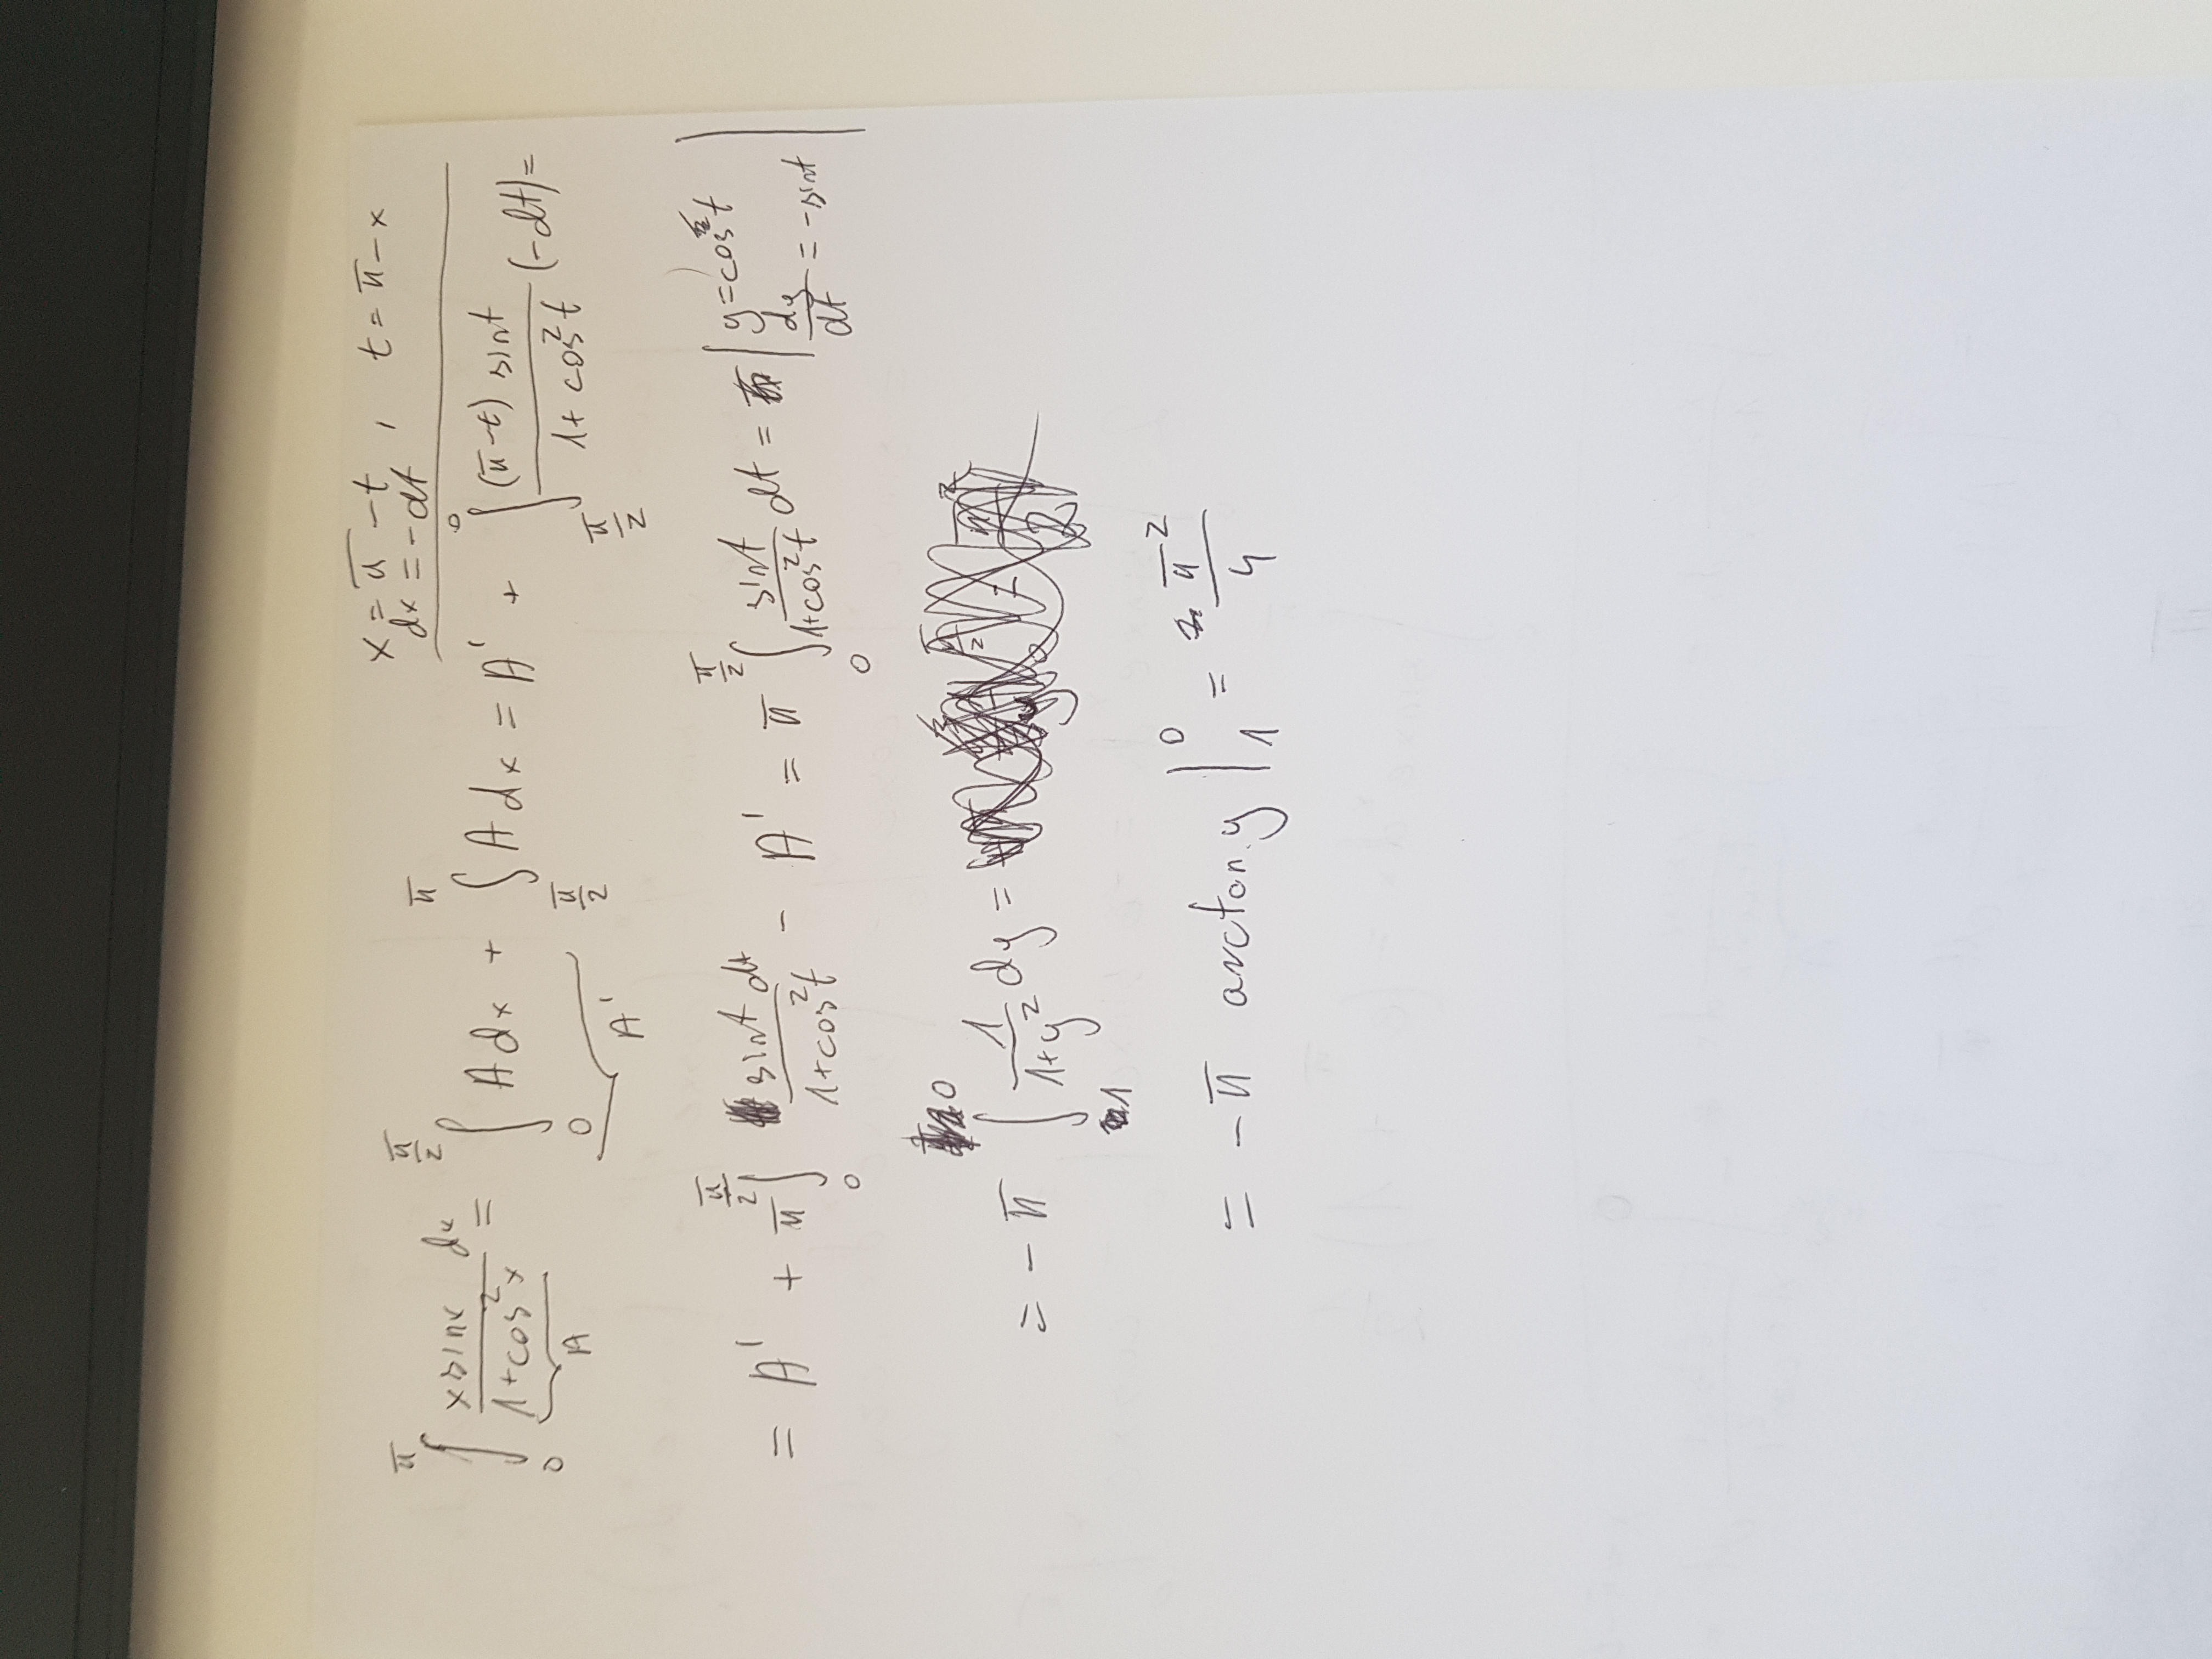 x = π - t , t = π - x
dx = -dt
∫_0^π x sinx/(1+cos²x) dx = ∫_0^{π/2} A dx + ∫_{π/2}^π A dx = A' + ∫_{π/2}^0 (π-t) sint/(1+cos²t) (-dt) =
A A'
= A' + π ∫_0^{π/2} sint dt/(1+cos²t) - A' = π ∫_0^{π/2} sint/(1+cos²t) dt = | y = cos t
dy/dt = -sint |
= - π ∫_1^0 1/(1+y²) dy =
= - π arctan y |_1^0 = π²/4